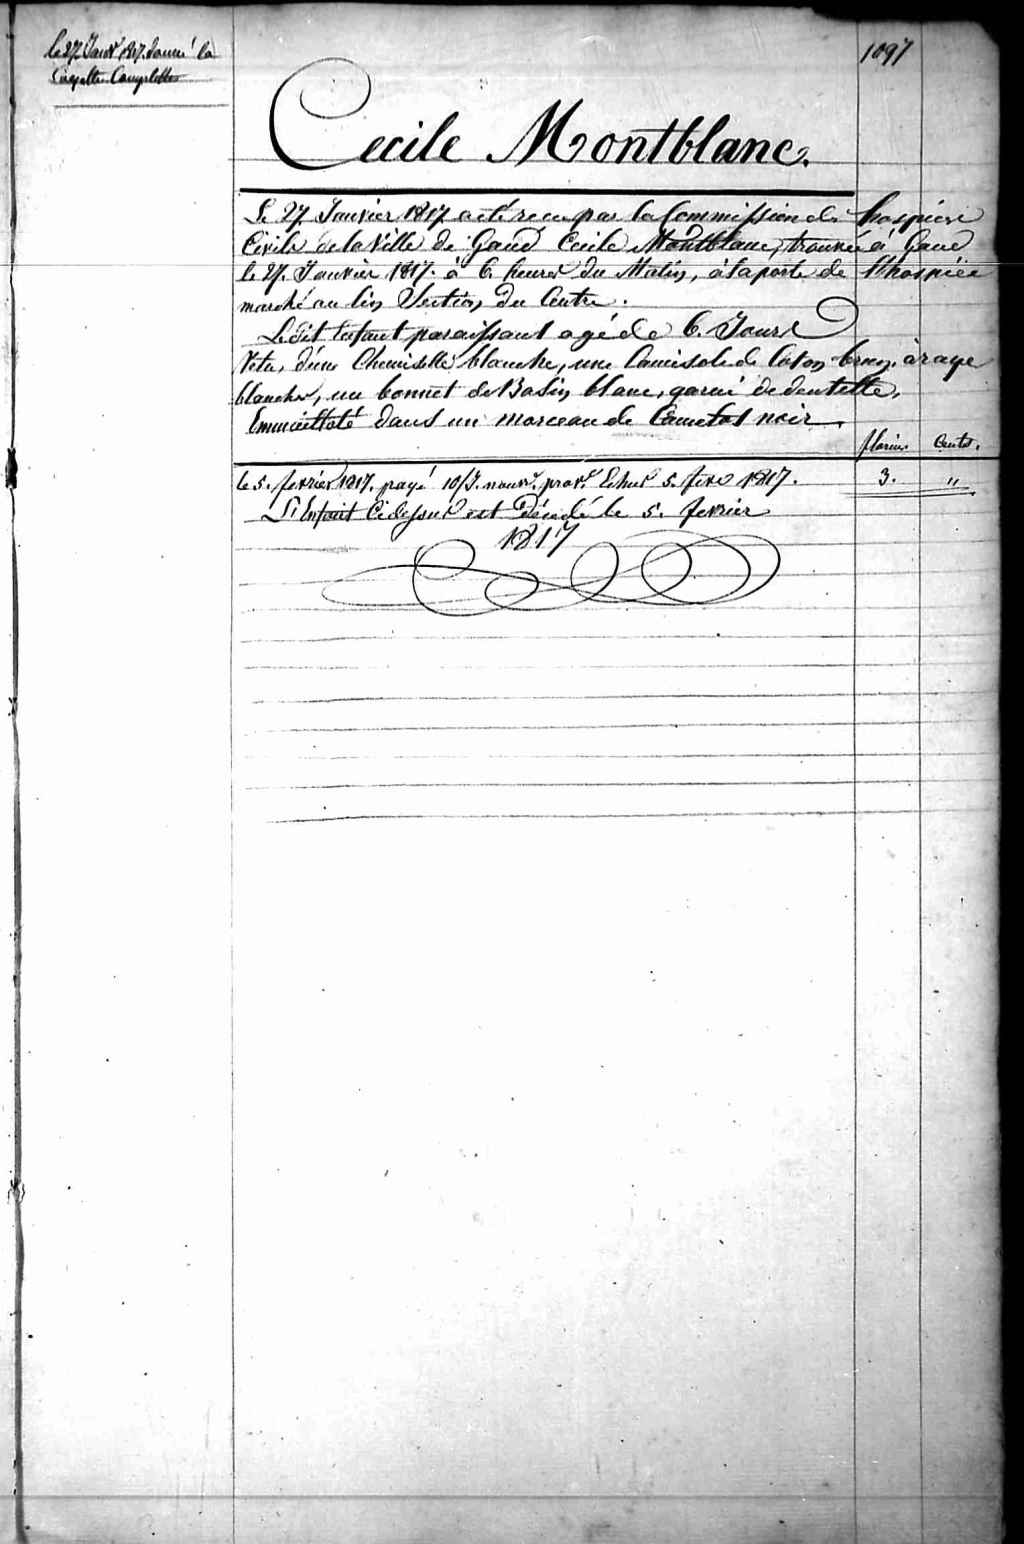 le 27 Janvr 1817. donné la
Layette Complette
1097
Cecile Montblanc.
Le 27 Janvier 1817 a été recue par la Commission des hospices
Civils de la Ville de Gand Cecile Montblanc, trouvée à Gand
le 27. Janvier 1817. à 6. heures du Matin, à la porte de l'hospice
marché au lin Section du Centre.
Le dit Enfant paraissant agé de 6. Jours
Vetu, d'une Chemisette blanche, une Camisole de Coton brun, à raye
blanches, un bonnet de Basin blanc, garni de dentelle,
Emmailloté dans un morceau de Camelot noir.
florins Cents.
le 5. fevrier 1817. payé 10/J. nour. prov. Echus 5. fevr 1817. 3. "
L'Enfant Cidessus est Décédé le 5. fevrier
1817